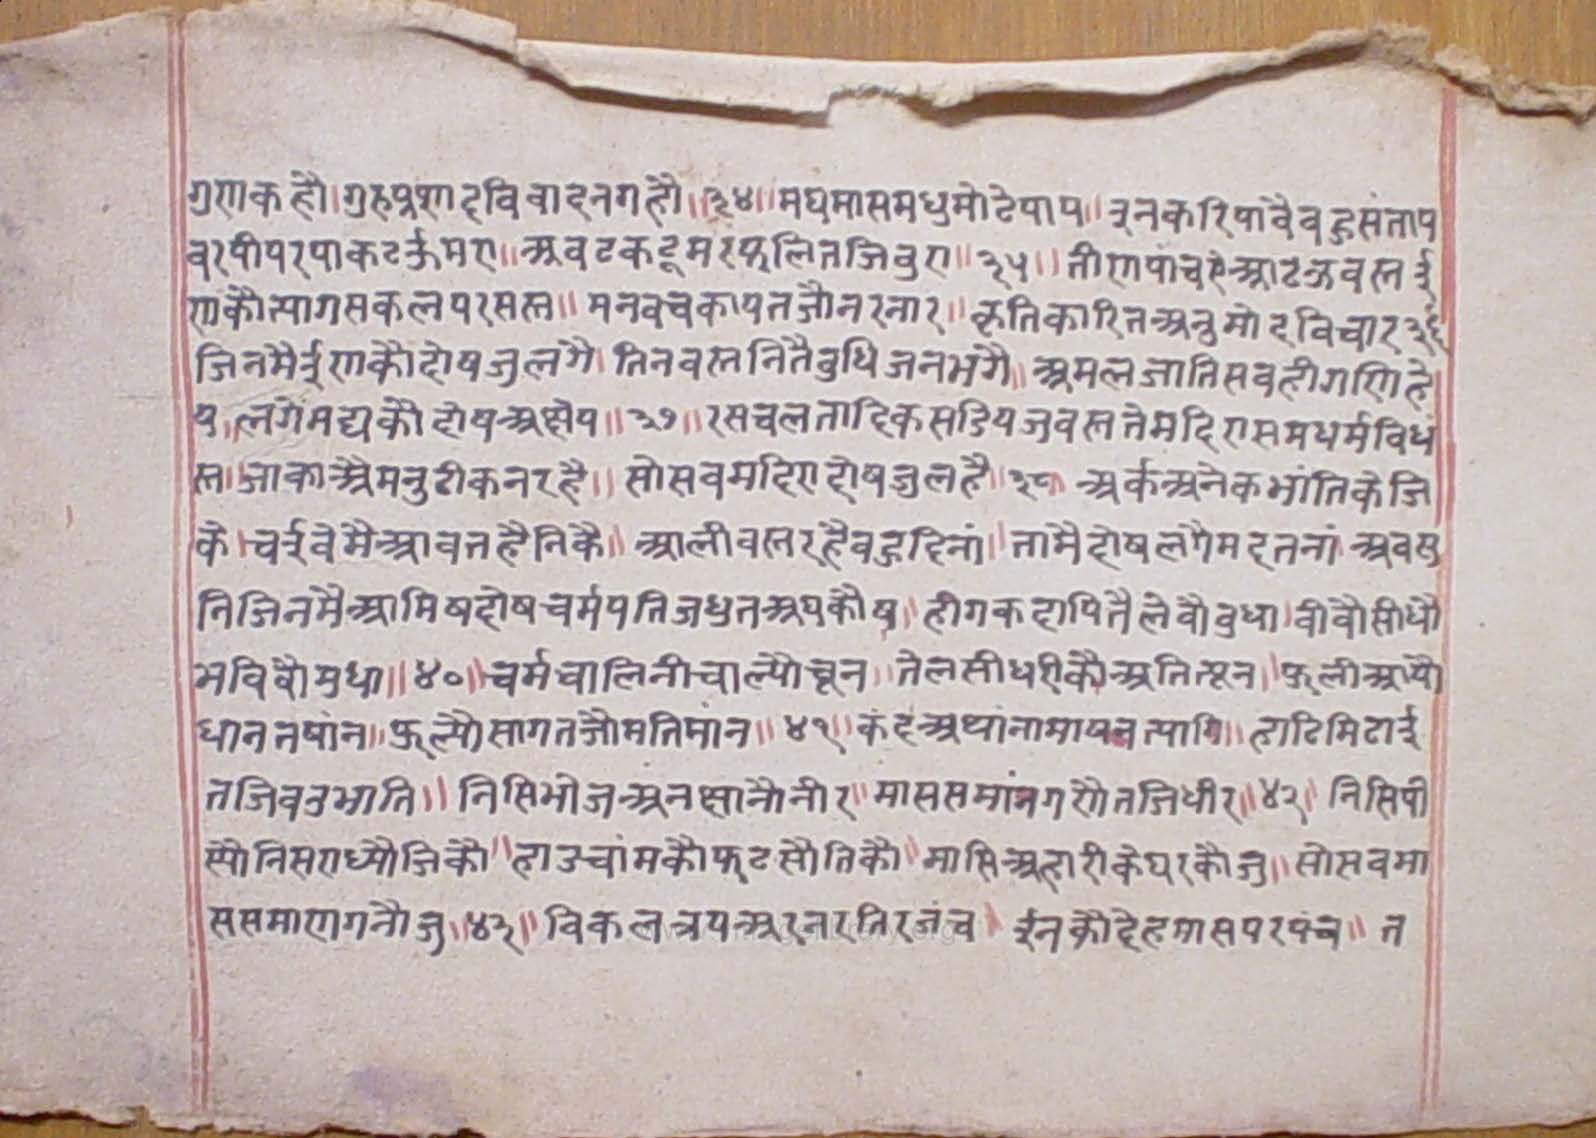 गुणकहौ। गुरुप्रशादविवादनगहौ॥ ३४॥ मद्यमासमधुमोटेपाप॥ इनकरिपावैबहुसंताप
वरपीपरपाकटऊमरा॥ अवटकटूमरफलितजिबुरा॥ ३५॥ तीरापांचएआटऊवस्त ई
णकौत्यागसकलपरसस्त॥ मनवचकायतजौनरनार॥ कृतिकारितअनुमोदविचार ३६
जिनमैईणकौदोषजुलगै। तिनवस्तनितैबुधिजनभगै॥ अमलजातिसवहीगणिले
य॥ लगेमद्यकौदोषअछेय॥ ३७॥ रसचलतादिकसडियजुवस्त तेमदिरासमधर्मविध
स्त॥ जाकाऔमनुटीकनरहै॥ सोसवमदिरादोषजुलहै॥ ३८ अर्कअनेकभांतिकेजि
के। चईवेमैआवतहैतिकै॥ आलीवस्तरहैबहुदिनां। तामैदोषलगैमदतनां अवसु
निजिनमैआमिषदोष चर्मपतिजधुतअपकोष॥ हीगकदापितैलेवौबुधा। वीवौसीधौ
भविषौमुधा॥ ४०॥ चर्मचालिनीचाल्यौचून॥ तेलसीधरीकौअतित्पून॥ फूलीआयौ
धानतषांन॥ फूल्यौसागतजौमतिमांन॥ ४१॥ कंदअथांनामाषनत्यागि॥ हाटिमिटाई
तजिवडभागि॥ निसिभोजअनछानौनीर॥ माससमांनगणौतजिधीर॥ ४२॥ निसिपी
स्यौनिसराध्यौजिकौ॥ हाडचांमकौफटसौतिकौ॥ मासिअहारीकेघरकौजु॥ सोसवमा
ससमाणगनौजु॥ ४३॥ विकलत्रयअरनरतिरजंच। ईनकौदेहमासपरपंच॥ त